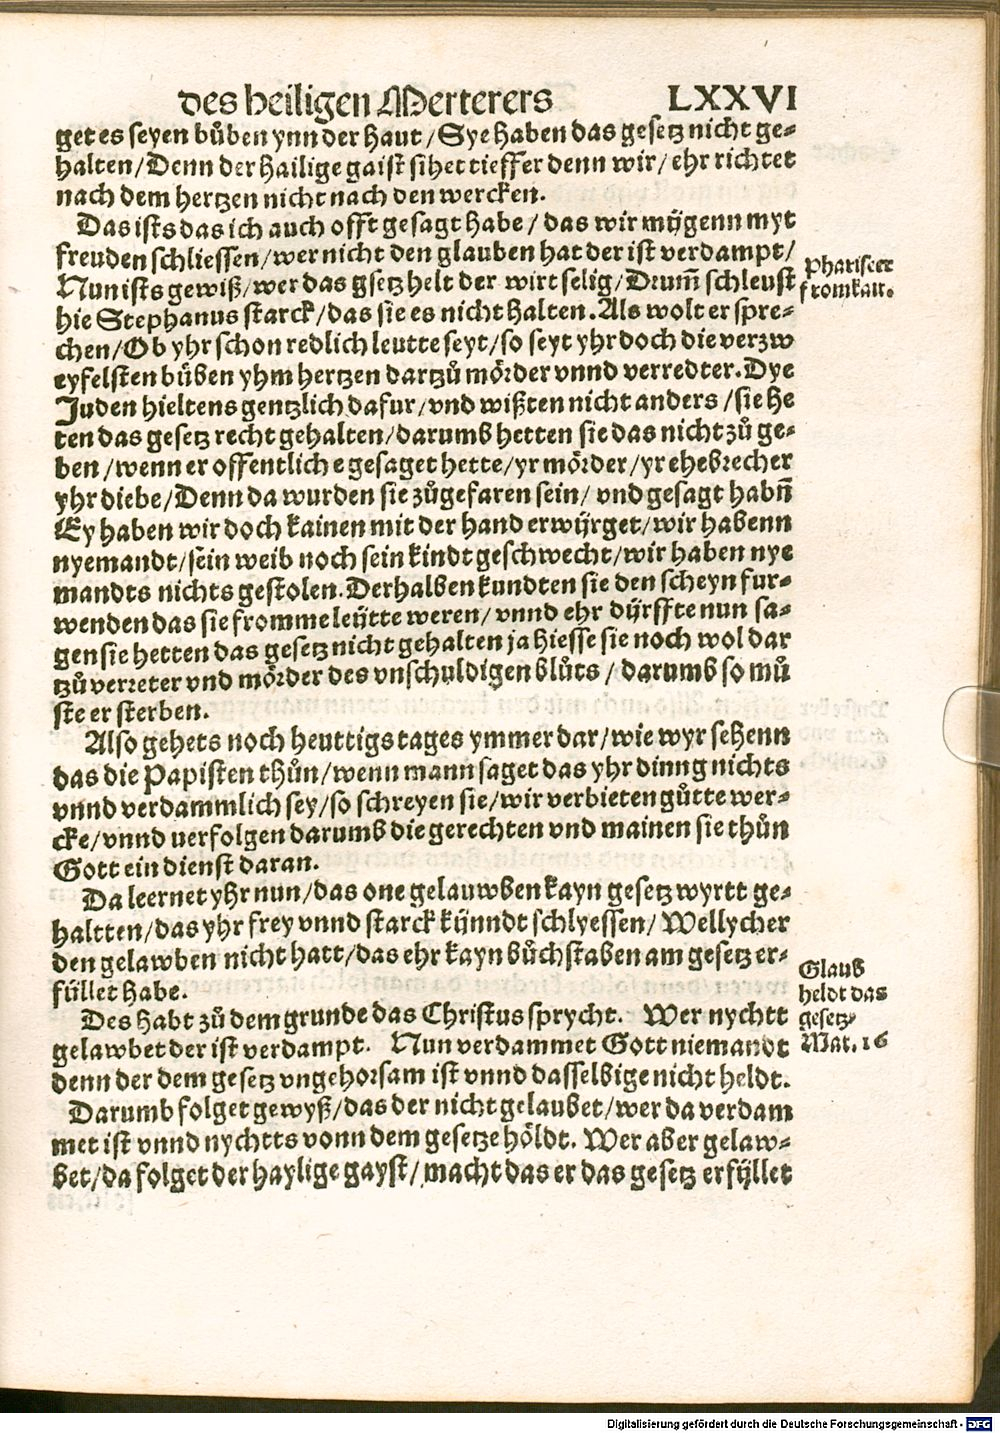 des heiligen Merterers LXXVI
get es seyen bůben ynn der haut / Sye haben das gesetz nicht ge⸗
halten / Denn der hailige gaist sihet tieffer denn wir / ehr richtet
nach dem hertzen nicht nach den wercken.
Das ists das ich auch offt gesagt habe / das wir mügenn myt
freuden schliessen / wer nicht den glauben hat der ist verdampt /
Nun ists gewiß / wer das gsetz helt der wirt selig / Drum̃ schleust
hie Stephanus starck / das sie es nicht halten. Als wolt er spre⸗
chen / Ob yhr schon redlich leutte seyt / so seyt yhr doch die verzw
eyfelsten büben yhm hertzen dartzů mörder vnnd verredter. Dye
Juden hieltens gentzlich dafur / vnd wißten nicht anders / sie he
ten das gesetz recht gehalten / darumb hetten sie das nicht zů ge⸗
ben / wenn er offentliche gesaget hette / yr mörder / yr ehebrecher
yhr diebe / Denn da wurden sie zůgefaren sein / vnd gesagt habñ
Ey haben wir doch kainen mit der hand erwürget / wir habenn
nyemandt / sein weib noch sein kindt geschwecht / wir haben nye
mandts nichts gestolen. Derhalben kundten sie den scheyn fur⸗
wenden das sie fromme leütte weren / vnnd ehr dürffte nun sa⸗
gen sie hetten das gesetz nicht gehalten ja hiesse sie noch wol dar
tzů verreter vnd mörder des vnschuldigen blůts / darumb so mů
ste er sterben.
Also gehets noch heuttigs tages ymmer dar / wie wyr sehenn
das die Papisten thůn / wenn mann saget das yhr dinng nichts
vnnd verdammlich sey / so schreyen sie / wir verbieten gůtte wer⸗
cke / vnnd uerfolgen darumb die gerechten vnd mainen sie thůn
Gott ein dienst daran.
Da leernet yhr nun / das one gelauwben kayn gesetz wyrtt ge⸗
haltten / das yhr frey vnnd starck künndt schlyessen / Wellycher
den gelawben nicht hatt / das ehr kayn bůchstaben am gesetz er⸗
füllet habe.
Des habt zů dem grunde das Christus sprycht. Wer nychtt
gelawbet der ist verdampt. Nun verdammet Gott niemandt
denn der dem gesetz vngehorsam ist vnnd dasselbige nicht heldt.
Darumb folget gewyß / das der nicht gelaubet / wer da verdam
met ist vnnd nychtts vonn dem gesetze höldt. Wer aber gelaw⸗
bet / da folget der haylige gayst / macht das er das gesetz erfüllet
Phariseer
fromkait.
Glaub
heldt das
gesetz
Mat. 16
Digitalisierung gefördert durch die Deutsche Forschungsgemeinschaft - DFG